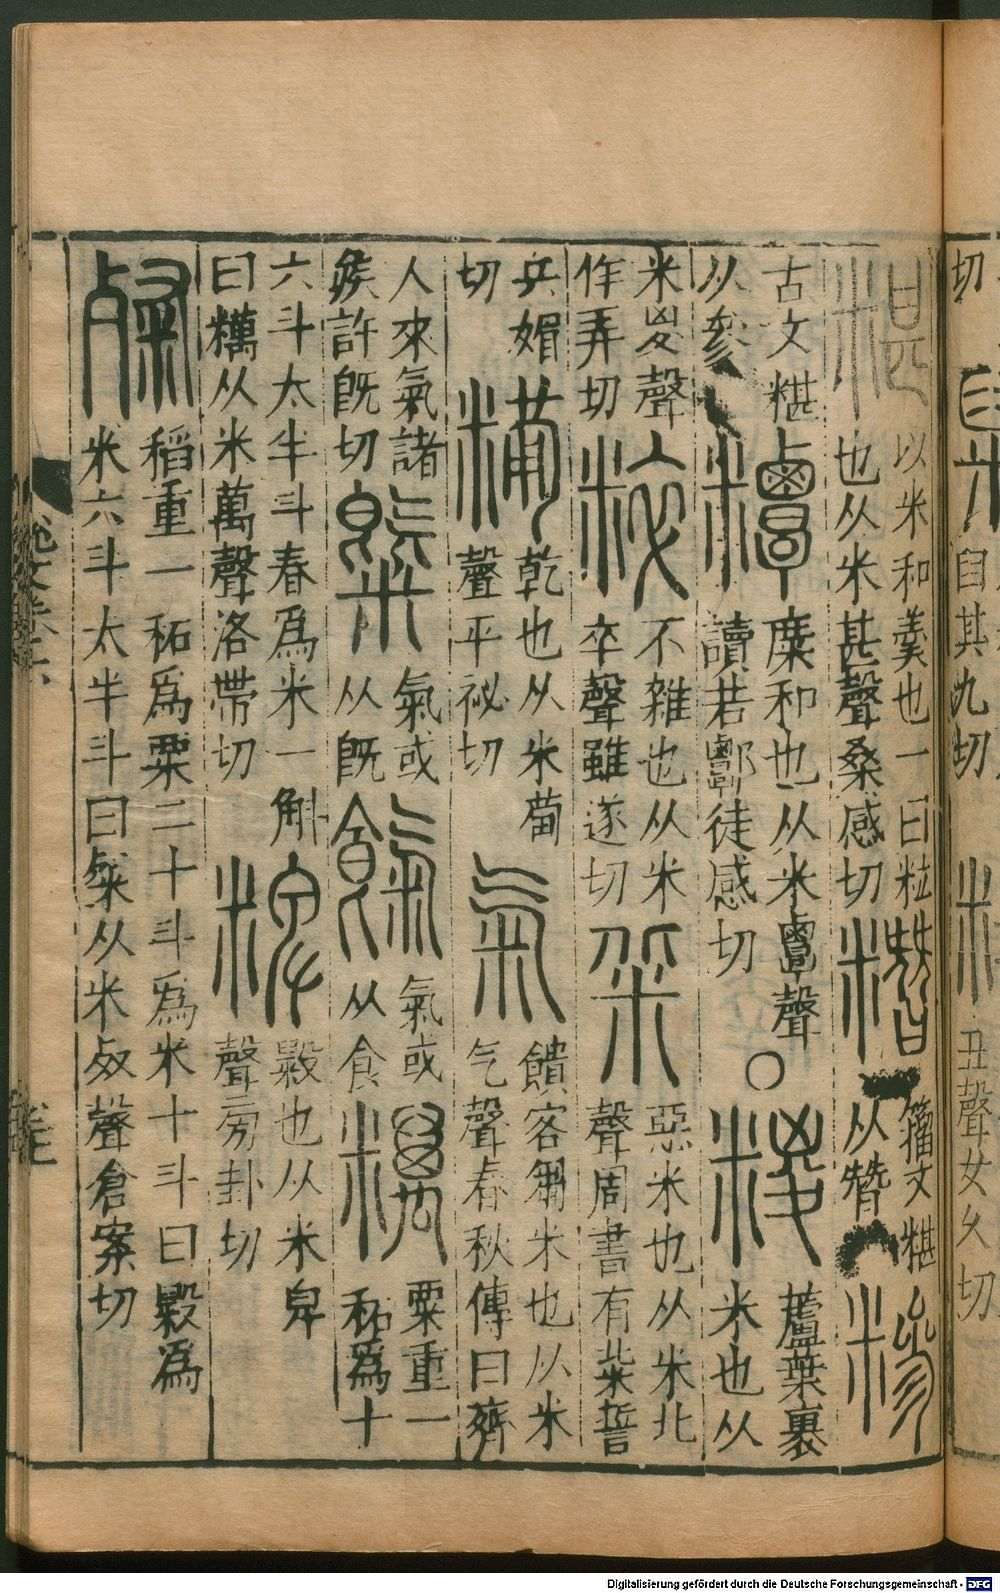 切
臼其九切
丑聲女久切
糂
以米和羹也一曰粒
也从米甚聲桑感切
糣
籒文糂
从朁
糝
古文糂
从參
糜和也从米𪉹聲
讀若鄿徒感切
○
糉
蘆葉裹
米也从
米㚇聲
作弄切
粹
不雜也从米
卒聲雖遂切
粊
惡米也从米北
聲周書有粊誓
兵媚
切
糒
乾也从米𤰇
聲平祕切
氣
饋客芻米也从米
气聲春秋傳曰齊
人來氣諸
矦許旣切
氣或
从旣
餼
氣或
从食
䊪
粟重一
䄷爲十
六斗太半斗舂爲米一斛
曰䊪从米萬聲洛帶切
粺
毇也从米卑
聲旁卦切
粲
稻重一䄷爲粟二十斗爲米十斗曰毇爲
米六斗太半斗曰粲从米𣦼聲倉案切
Digitalisierung gefördert durch die Deutsche Forschungsgemeinschaft - DFG